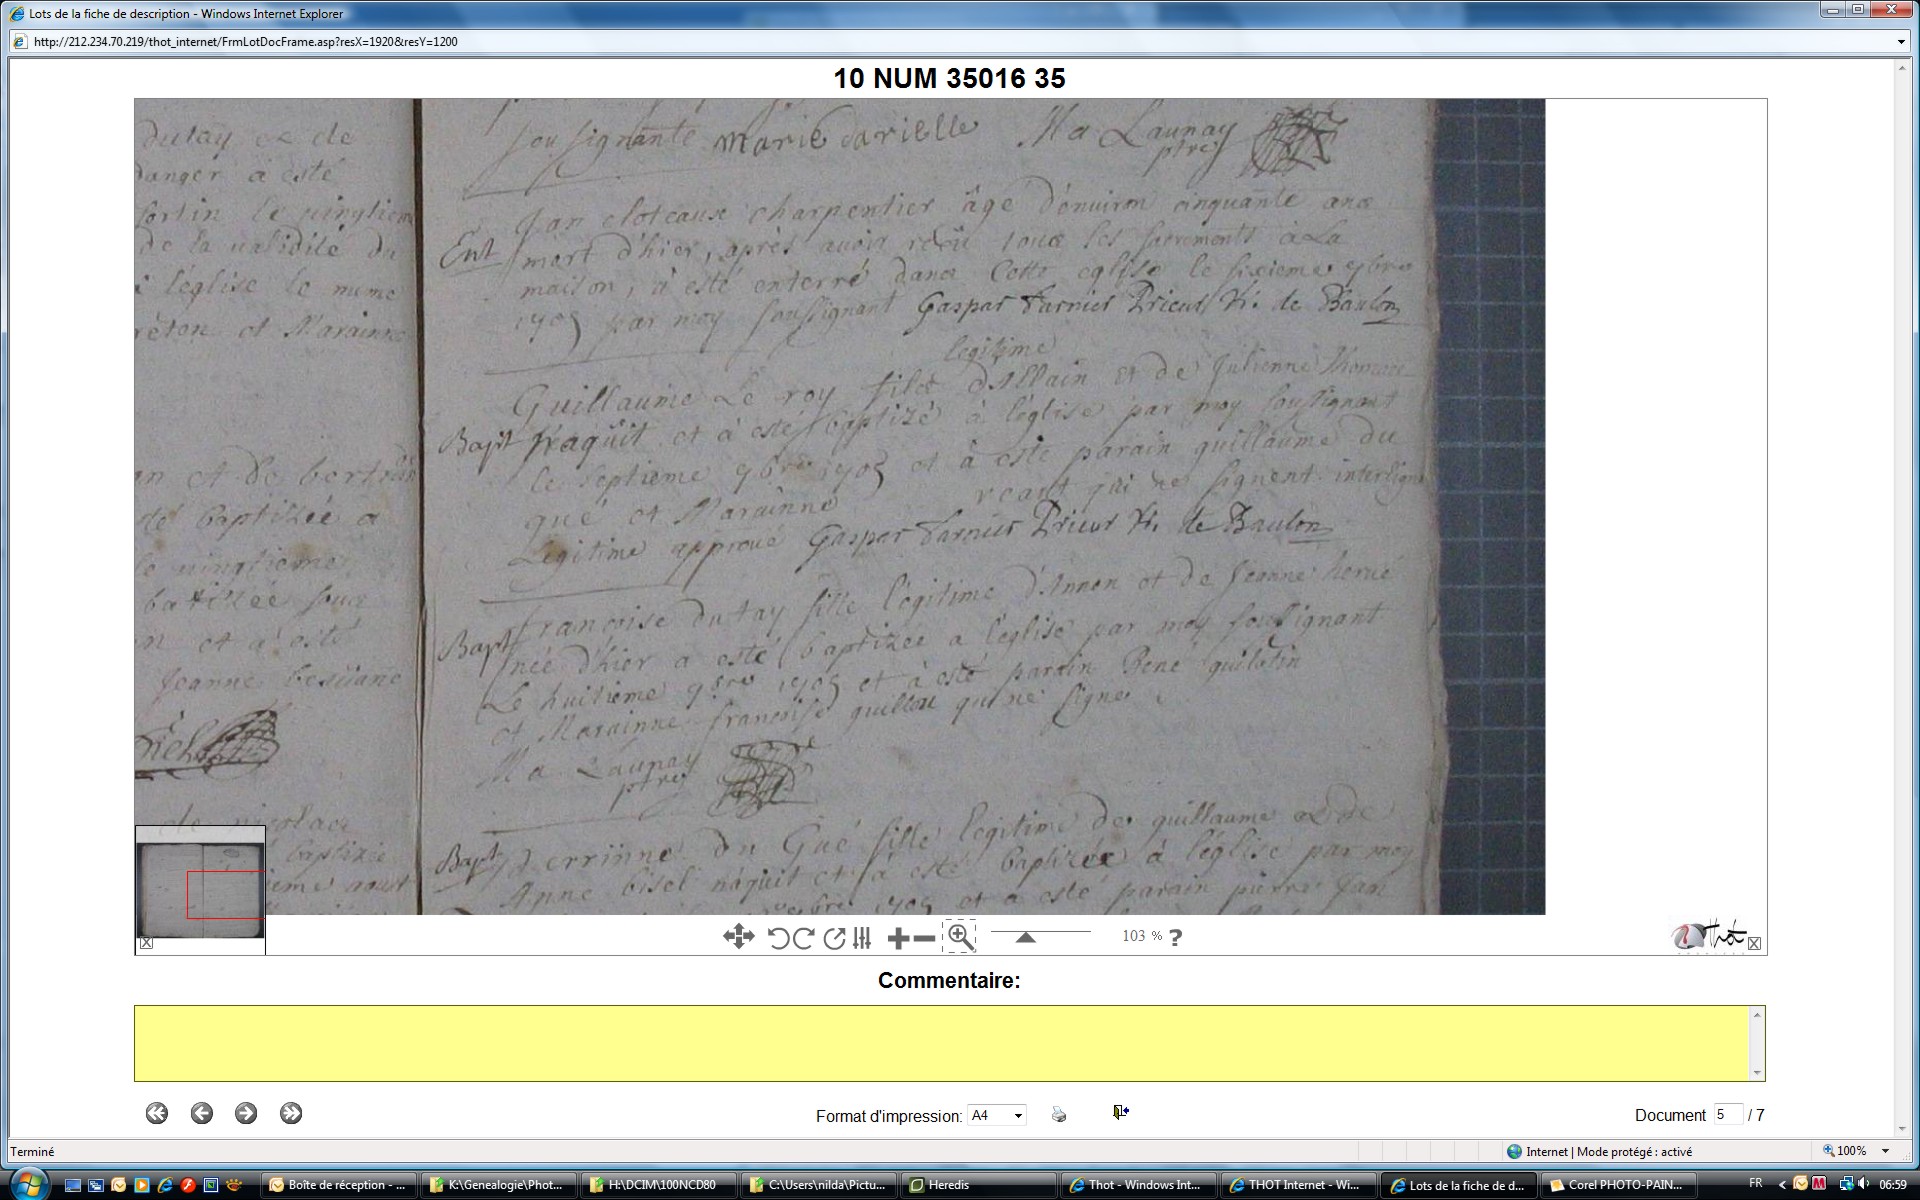 Lots de la fiche de description - Windows Internet Explorer
http://212.234.70.219/thot_internet/FrmLotDocFrame.asp?resX=1920&resY=1200
10 NUM 35016 35
dutay et de
danger à esté
fortin le vingtiem
de la validité du
à l'église le
et Marainne
an et de bertran
té baptizée a
le vingtieme
batizée sous
n et a esté
Jeanne
de nicolas
baptizée
ieme aout
sousignante Marie darielle Ma Launay
ptre
Jan cloteause charpentier âgé d'environ cinquante ans
Ent mort d'hier, après avoir reçû tous les sacrements à La
maison, à esté enterré dans Cette eglise le sixieme 9bre
1705 par moy soussignant Gaspar Farnier Prieur Vi. de Baulon
legitime
Guillaume Le roy fils d'Allain et de Julienne Thomas
Bapt naquit et à esté baptizé à l'église par moy sousignant
le septieme 9bre 1705 et à esté parain guillaume du
gué et Marainne ne signent interligne
Legitime approuvé Gaspar Farnier Prieur Vi. de Baulon
francoise dutay fille légitime d'Annen et de Jeanne hervé
Bapt née d'hier a esté baptizée a l'église par moy sousignant
Le huitieme 9bre 1705 et à esté parain René
et Marainne francoise guillou qui ne signe
Ma Launay
ptre
perrinne du Gué fille legitime de guillaume & de
Bapt Anne bisel naquit et à esté baptizée à l'église par moy
9bre 1705 et a esté parain pierre Jan
103 %
?
Thot
Commentaire:
Format d'impression: A4
Document 5 / 7
Terminé
Internet | Mode protégé : activé
100%
Boîte de réception - ...
K:\Genealogie\Phot...
H:\DCIM\100NCD80
C:\Users\nilda\Pictu...
Heredis
Thot - Windows Int...
THOT Internet - Wi...
Lots de la fiche de d...
Corel PHOTO-PAIN...
FR
06:59